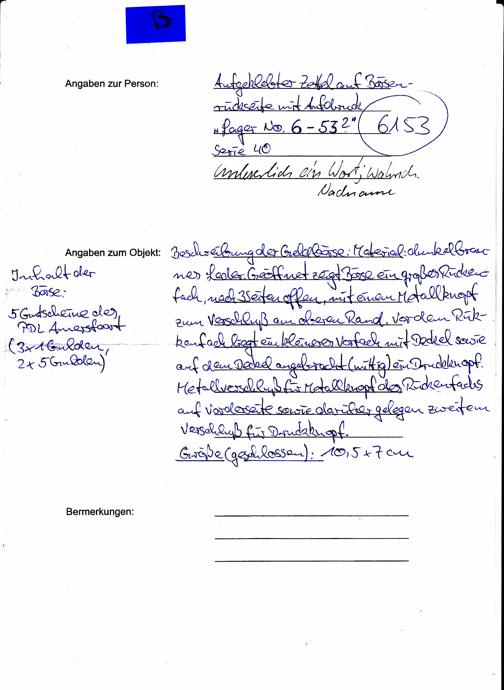 B
Angaben zur Person:
Aufgeklebter Zettel auf Börsen-
rückseite mit Aufdruck
"Lager No. 6-53 2"
6153
Serie 40
Unleserlich ein Wort, wahrsch.
Nachname
Angaben zum Objekt:
Beschreibung der Geldbörse: Material: dunkelbrau-
nes Leder. Geöffnet zeigt Börse ein großes Rücken-
fach, nach 3 Seiten offen, mit einem Metallknopf
zum Verschluß am oberen Rand. Vor dem Rük-
kenfach liegt ein kleineres Vorfach mit Deckel sowie
auf dem Deckel angebracht (mittig) ein Druckknopf.
Metallverschluß für Metallknopf des Rückenfachs
auf Vorderseite sowie darüber gelegen zweitem
Verschluß für Druckknopf.
Größe (geschlossen): 10,5 x 7 cm
Inhalt der
Börse:
5 Gutscheine des
PDL Amersfoort
(3 x 1 Gulden,
2 x 5 Gulden)
Bermerkungen: